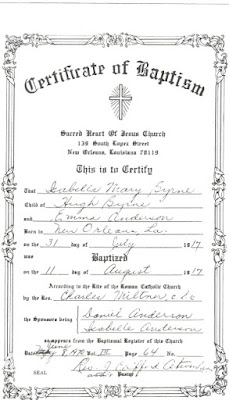 Certificate of Baptism
Sacred Heart Of Jesus Church
139 South Lopez Street
New Orleans, Louisiana 70119
This is to Certify
That Isabelle Mary Byrne
Child of Hugh Byrne
and Emma Anderson
Born in New Orleans, La.
on the 31 day of July 1917
was
Baptized
on the 11 day of August 1917
According to the Rite of the Roman Catholic Church
by the Rev. Charles Miltner, c.s.c
the Sponsors being Daniel Anderson
Isabelle Anderson
as appears from the Baptismal Register of this Church
Dated June 8, 1970 Vol. III Page 64 No.
Rev.
SEAL Pastor